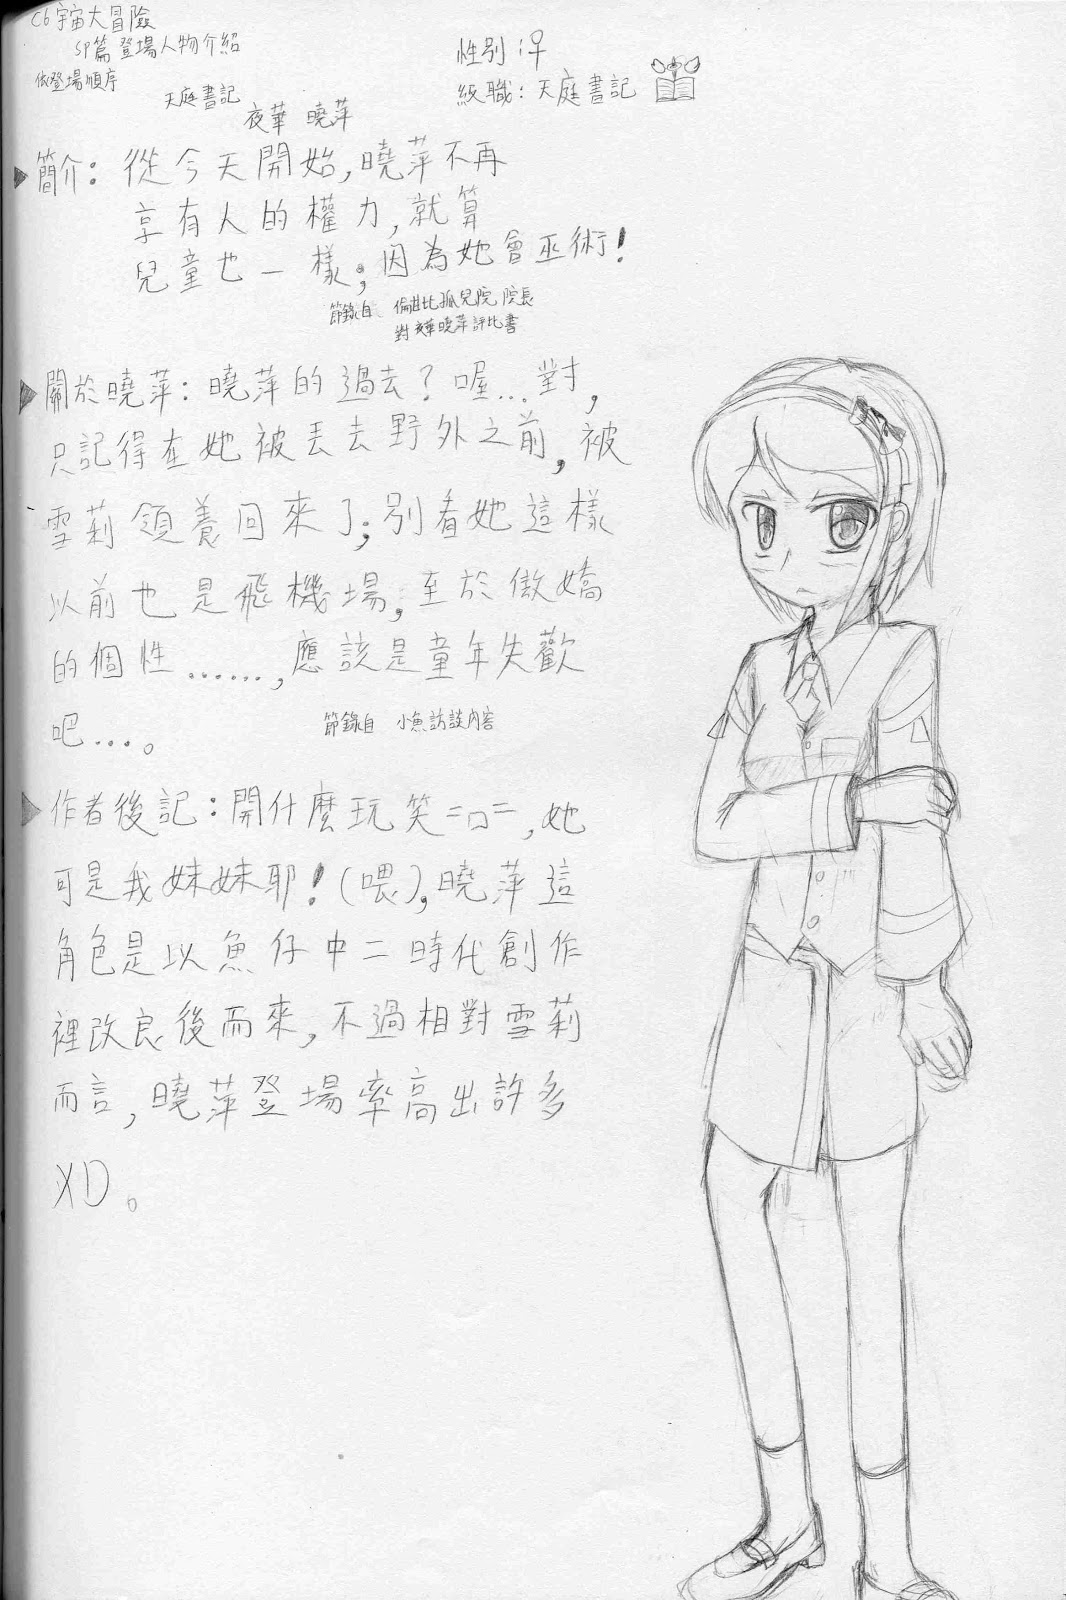 C6宇宙大冒險
SP篇 登場人物介紹
依登場順序
天庭書記
夜華 曉萍
性別:♀
級職:天庭書記
簡介:從今天開始,曉萍不再
享有人的權力,就算
兒童也一樣;因為她會巫術!
節錄自 倫世比孤兒院 院長
對夜華曉萍評比書
關於曉萍:曉萍的過去?喔...對,
只記得在她被丟去野外之前,被
雪莉領養回來了;別看她這樣
以前也是飛機場,至於傲嬌
的個性......,應該是童年失歡
吧...。
節錄自 小魚訪談內容
作者後記:開什麼玩笑=口=,她
可是我妹妹耶!(喂),曉萍這
角色是以魚仔中二時代創作
裡改良後而來,不過相對雪莉
而言,曉萍登場率高出許多
XD。